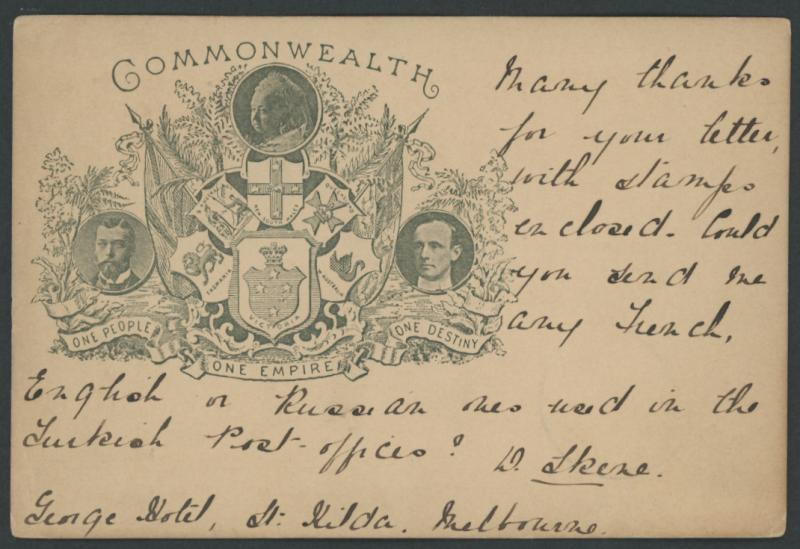 COMMONWEALTH
NEW SOUTH WALES
TASMANIA
VICTORIA
ONE PEOPLE
ONE DESTINY
ONE EMPIRE
Many thanks
for your letter,
with stamps
enclosed. Could
you send me
any French,
English or Russian ones used in the
Turkish Post-offices?
D. Skene.
George Hotel, St. Kilda. Melbourne.